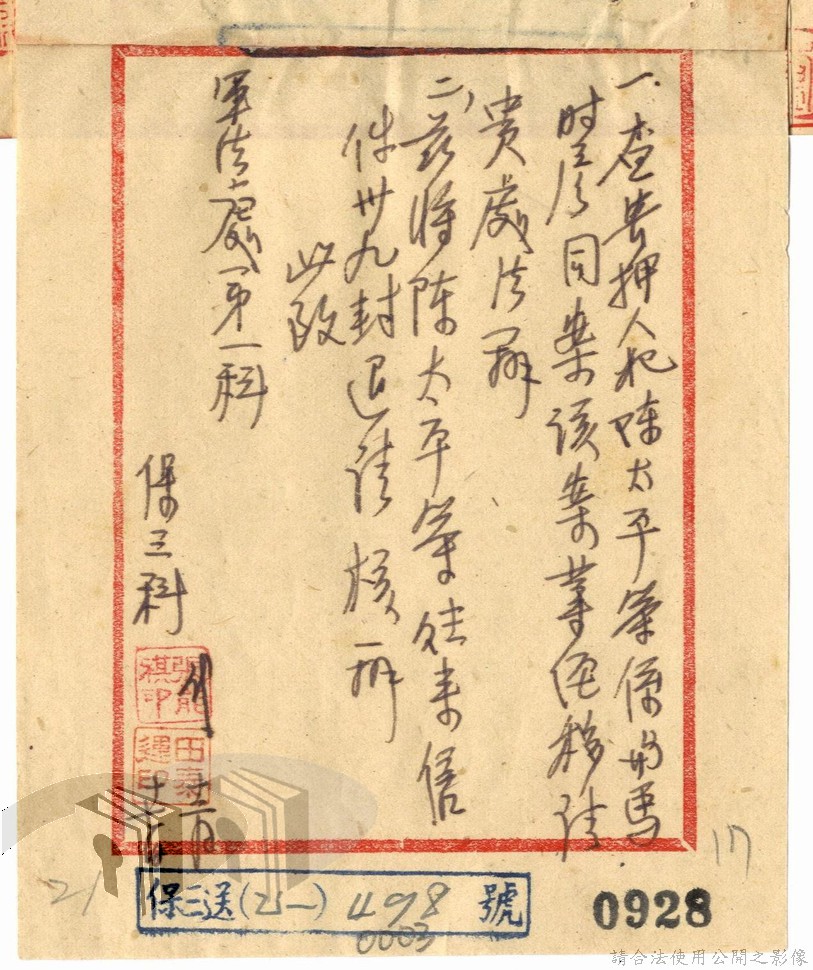 一、查貴押人犯陳太平等係與馬
时彥同案該案業經移請
貴處法辦
二、茲將陳太平等往来信
件卅九封退請核辦
此致
軍法處第一科
保三科
十二月
保三送(乙一)498號
0003
0928
17
21
請合法使用公開之影像